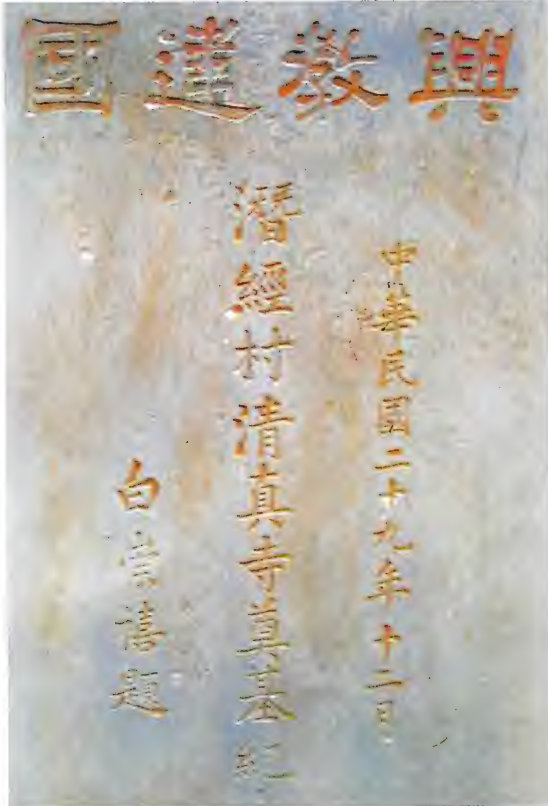 興教建國
中華民國二十九年十二月
潛經村清真寺奠基紀
白崇禧題